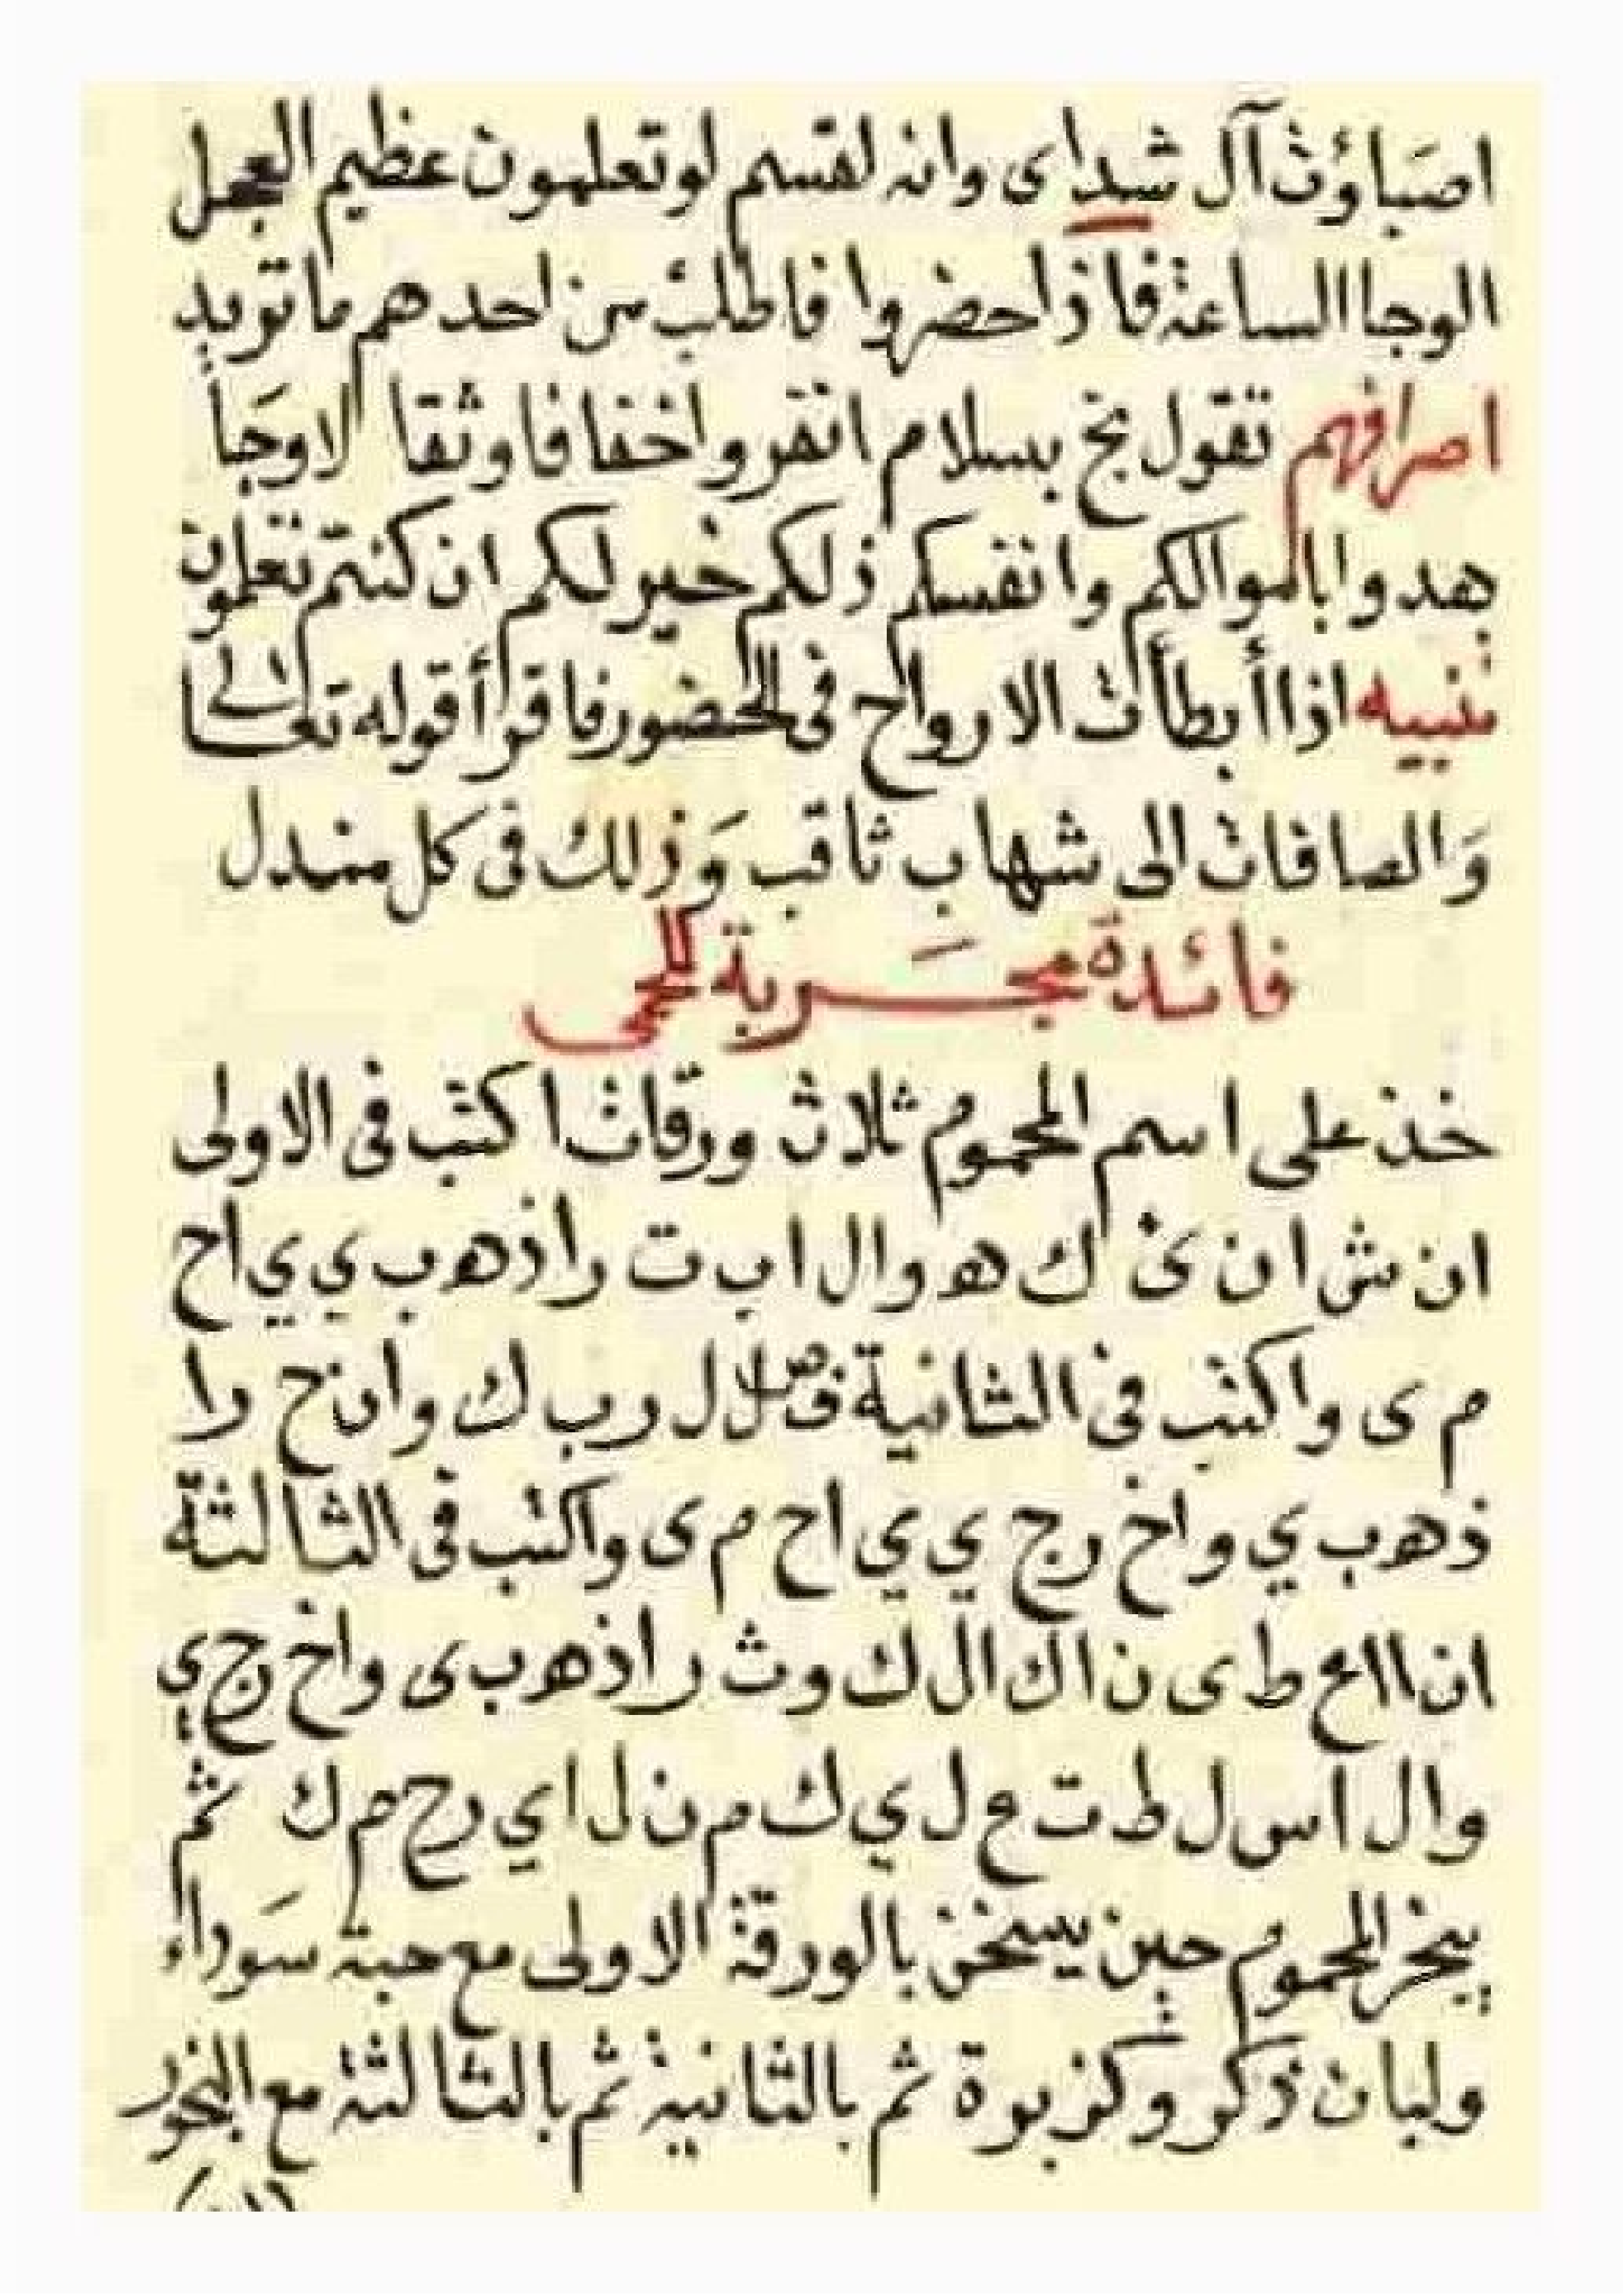 اصَباؤث آل شداى وانه لقسم لو تعلمون عظيم العجل
الوحا الساعة فاذا حضروا فاطلب من احدهم ما تريد
اصرافهم تقول بخ بسلام انفروا خفافا وثقالا وجا
هدوا باموالكم وانفسكم ذلكم خير لكم ان كنتم تعلمون
تنبيه اذا أبطأت الارواح فى الحضور فاقرأ قوله تعالى
وَالصافات الى شهاب ثاقب وَذلك فى كل مندل
فائدة مجَربة للحمى
خذ على اسم المحموم ثلاث ورقات اكتب فى الاولى
ان ش ان ئ ك ه و ال ا ب ت ر ا ذ ه ب ي ي ا ح
م ى واكتب فى الثانية ف ص ل ل ر ب ك و ا ن ح ر ا
ذ ه ب ي و ا خ ر ج ي ي ا ح م ى واكتب فى الثالثة
ا ن ا ا ع ط ى ن ا ك ا ل ك و ث ر ا ذ ه ب ى و ا خ ر ج ي
و ا ل ا س ل ط ت ع ل ي ك م ن ل ا ي ر ح م ك ثم
يبخر المحموم حين يسخن بالورقة الاولى مع حبة سَوداء
ولبان ذكر وكزبرة ثم بالثانية ثم بالثالثة مع البخور